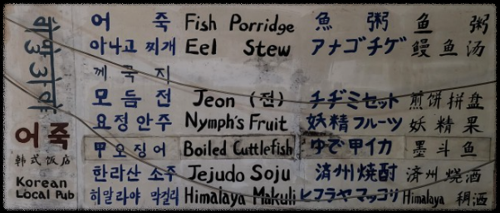 어죽 Fish Porridge 魚粥 鱼粥
아나고 찌개 Eel Stew アナゴチゲ 鳗鱼汤
께국지
모듬전 Jeon (전) チヂミセット 煎饼拼盘
요정안주 Nymph's Fruit 妖精フルーツ 妖精果
갑오징어 Boiled Cuttlefish ゆで甲イカ 墨斗鱼
한라산 소주 Jejudo Soju 済州焼酎 济州烧酒
히말라야 막걸리 Himalaya Makuli ヒマラヤマッコリ Himalaya 稠酒
어죽
韩式饭店
Korean
Local Pub